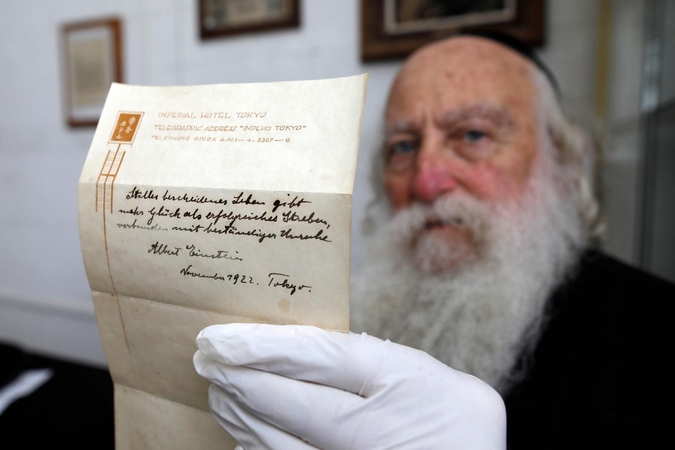 IMPERIAL HOTEL TOKYO
TELEGRAPHIC ADDRESS "IMPEHO TOKYO"
TELEPHONE GINZA
Stilles bescheidenes Leben gibt
mehr Glück als erfolgreiches Streben,
verbunden mit beständiger Unruhe
Albert Einstein.
November 1922. Tokyo.